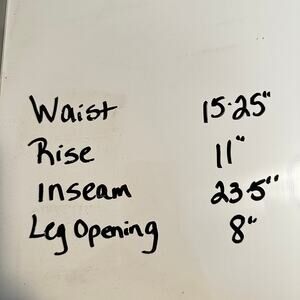 Waist 15.25"
Rise 11"
Inseam 23.5"
Leg Opening 8"